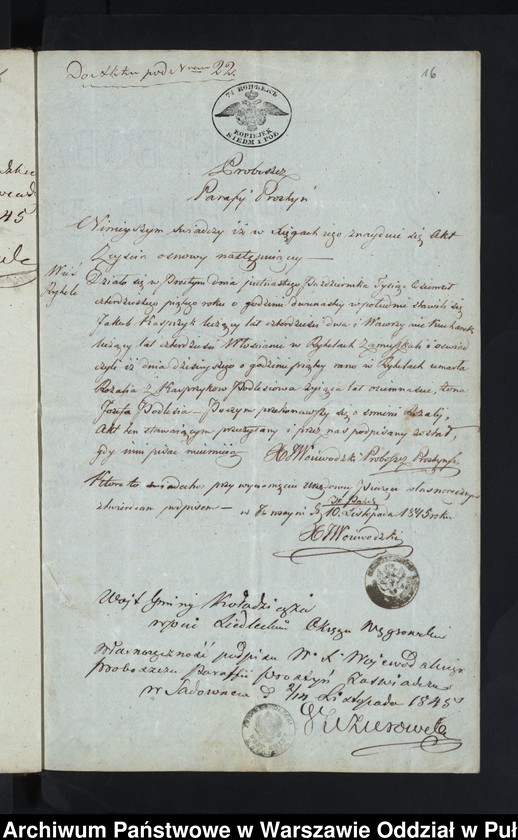 Do Aktu pod Nrem 22.
16
7½ КОПѢЕКЪ
KOPIEJEK
SIEDM I PÓŁ
Proboszcz
Parafij Prostyń
Ninieyszym świadczy iż w Xięgach iego znayduie się Akt
Zeyścia osnowy następuiący
Wieś
Rytele
Działo się w Prostyni dnia piętnastego Października Tysiąc Ośmset
czterdziestego piątego roku o godzinie dwunastey w południe stawili się
Jakub Kasprzyk liczący lat czterdzieści dwa i Wawrzyniec Kucharek
liczący lat czterdzieści Włościanie w Rytelach Zamieszkali i oświad
czyli iż dnia dzisieyszego o godzinie piątey rano w Rytelach umarła
Rozalia z Kasprzyków Podlesiowa żyiąca lat ośmnaście, żona
Józefa Podlesia — Poczym przekonawszy się o śmierci Rozalij,
Akt ten stawaiącym przeczytany i przez nas podpisany został,
gdy inni pisać nieumieią X Woiewodzki Proboszcz Prostyński
Które to świadectwo przy wyciśnięciu Urzędowey pieczęci własnoręcznym
stwierdzam podpisem — w Prostyni d. 10. Listopada 1845 roku
X Woiewodzki
Woyt Gminy Kołodziąża
w pcie Siedleckim Okręgu Węgrowskim
własnoręczność podpisu W. X. Wojewodzkiego
Proboszcza Parafii Prostyń Zaświadcza
w Sadownem d. 2/14 Listopada 1845
Archiwum Państwowe w Warszawie Oddział w Puł